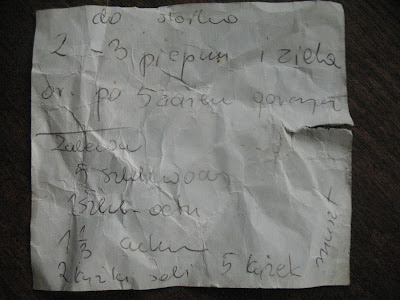 do słoika
2-3 pieprzu i ziela
po 5 ziaren gorczycy
Zalewa
5 szkl. wody
1 szkl. octu
1 1/3 cukru
2 łyżki soli 5 łyżek